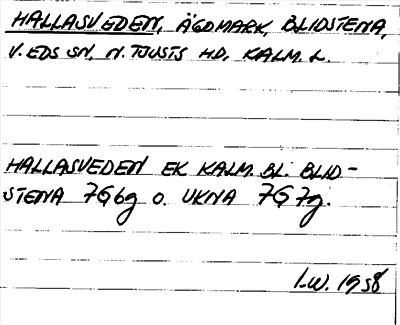 HALLASVEDEN, ÄGOMARK, BLIDSTENA,
V. EDS SN, N. TJUSTS HD, KALM. L.
HALLASVEDEN EK KALM. BL. BLID-
STENA 7G6g o. UKNA 7G7g.
I.W. 1958